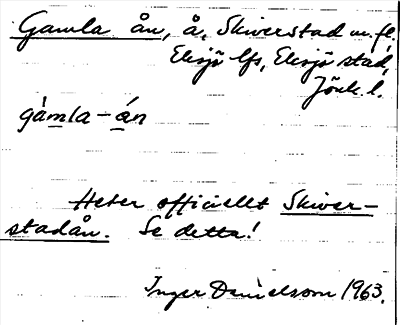 Gamla ån, å, Skiverstad m.fl.
Eksjö lfs, Eksjö stad,
Jönk. l.
gàmla-án
Heter officiellt Skiver-
stadån. Se detta!
Inger Danielsson 1963.